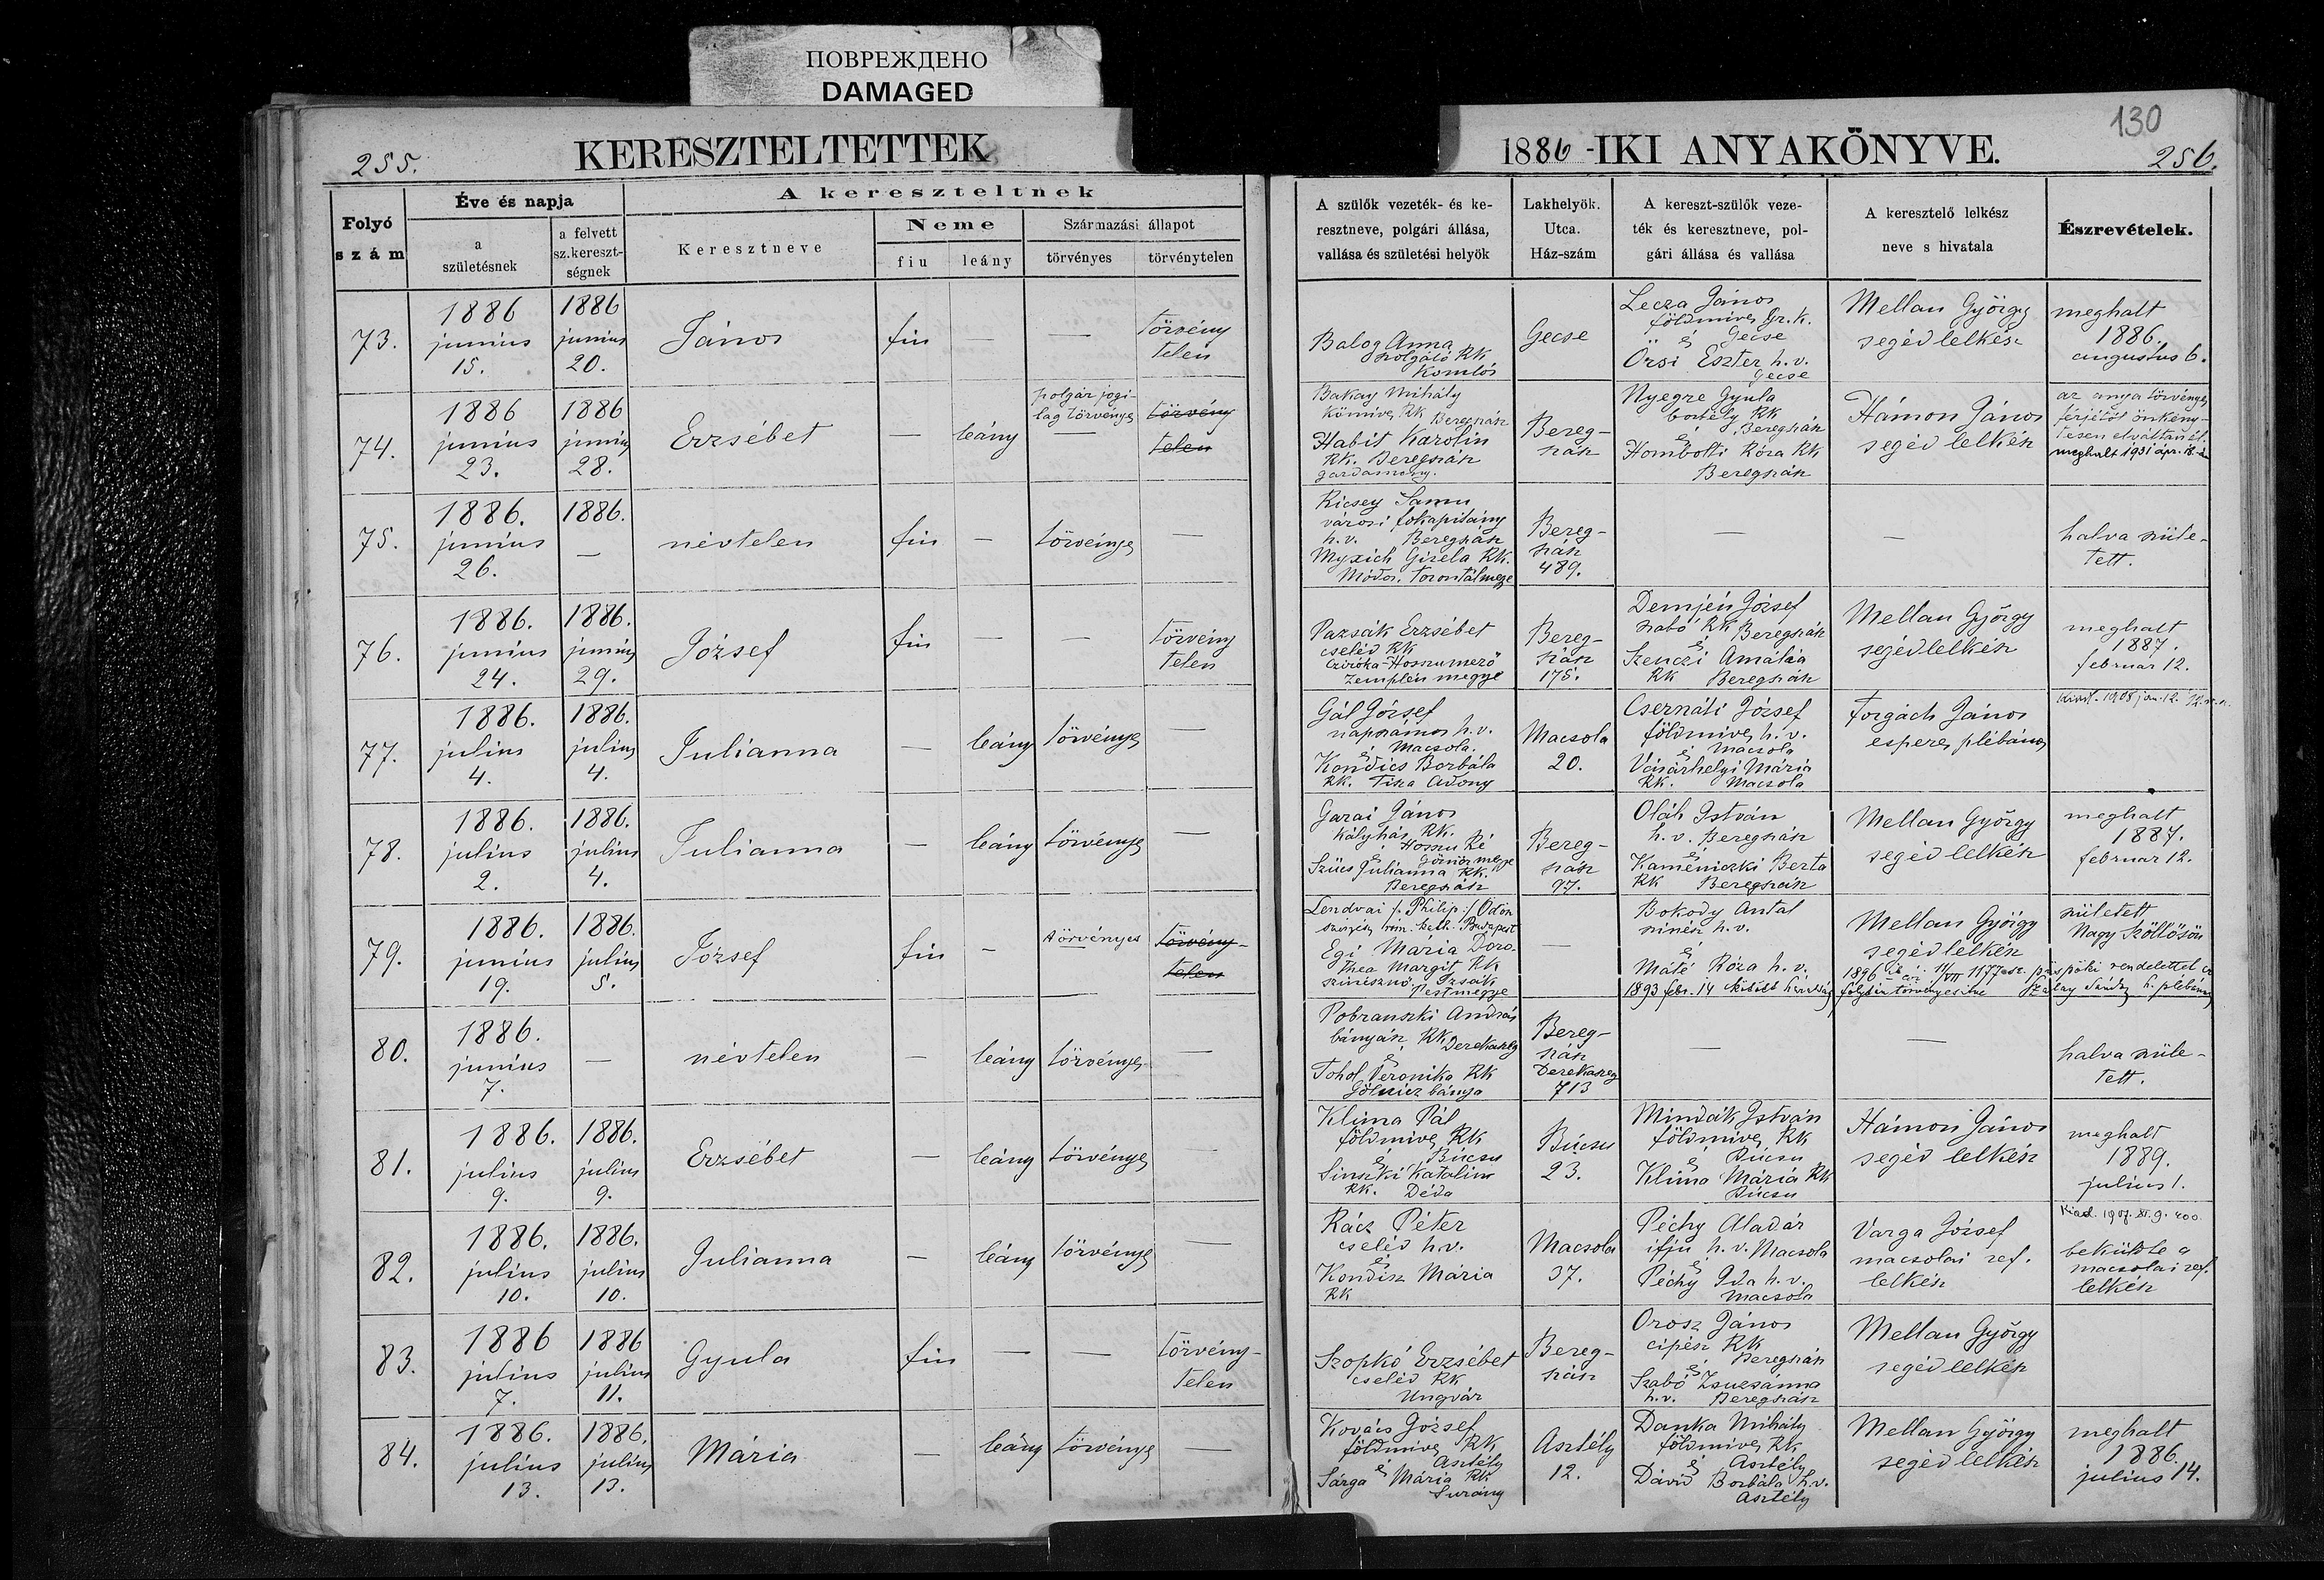 ПОВРЕЖДЕНО
DAMAGED
255.
KERESZTELTETTEK
1886-IKI ANYAKÖNYVE.
130
256.
Folyó szám
Éve és napja
a születésnek
a felvett sz. kereszt-ségnek
A kereszteltnek
Keresztneve
Neme
fiu
leány
Származási állapot
törvényes
törvénytelen
A szülők vezeték- és ke-
resztneve, polgári állása,
vallása és születési helyök
Lakhelyök.
Utca.
Ház-szám
A kereszt-szülők veze-
ték és keresztneve, pol-
gári állása és vallása
A keresztelő lelkész
neve s hivatala
Észrevételek.
73.
1886
junius
15.
1886
junius
20.
János
fiu
—
—
törvény
telen
Balog Anna
szolgáló RK
Komlós
Gecse
Lecza János
földmives Gr. k.
Gecse
és
Örsi Eszter h. v.
Gecse
Mellan György
segédlelkész
meghalt
1886.
augustus 6.
74.
1886
junius
23.
1886
junius
28.
Erzsébet
—
leány
polgár jogi-
lag törvényes
—
törvény
telen
Bakay Mihály
kőmives RK Beregszász
Habit Karolin
RK. Beregszász
Bereg-
szász
Nyegre Gyula
borbély RK
Beregszász
és
Hombolti Róza RK
Beregszász
Hámon János
segéd lelkész
az anya törvényes
férjétől önkény-
tesen elváltan él.
meghalt 1931 ápr. 18-án
75.
1886.
junius
26.
1886.
—
névtelen
fiu
—
törvényes
—
Ricsey Samu
városi főkapitány
h. v. Beregszász
Myxich Gizela RK.
Módos, Torontálmegye
Bereg-
szász
489.
—
—
halva szüle-
tett.
76.
1886.
junius
24.
1886.
junius
29.
József
fiu
—
—
törvény
telen
Pazsák Erzsébet
cseléd RK
Cziróka-Hosszumező
Zemplén megye
Bereg-
szász
175.
Demjén József
szabó RK Beregszász
és
Szenczi Amália
RK Beregszász
Mellan György
segédlelkész
meghalt
1887.
februar 12.
77.
1886.
julius
4.
1886.
julius
4.
Julianna
—
leány
törvényes
—
Gál József
napszámos h. v.
Macsola.
és
Kondics Borbála
RK. Tisza Adony
Macsola
20.
Csernáti József
földmives h. v.
Macsola
és
Vásárhelyi Mária
RK. Macsola
Forgách János
esperes plébános
Kiad. 1908 jan. 12.
78.
1886.
julius
2.
1886.
julius
4.
Julianna
—
leány
törvényes
—
Garai János
kályhás RK.
Hosszu Ré
Gömör megye
és
Szücs Julianna RK.
Beregszász
Bereg-
szász
97.
Oláh István
h. v. Beregszász
és
Kameniczki Berta
RK Beregszász
Mellan György
segéd lelkész
meghalt
1887.
februar 12.
79.
1886.
junius
19.
1886.
julius
5.
József
fiu
—
törvényes
törvény-
telen
Lendvai /: Philip :/ Ödön
szinész róm. kath. Budapest
Egi Mária Doro-
thea Margit RK
szinésznő Izsák
Pestmegye
—
Bokody Antal
szinész h. v.
és
Máté Róza h. v.
Mellan György
segédlelkész
született
Nagy Szöllősön
1896 püspöki rendelettel
1893 febr. 14 kötött házasság folytán törvényesitve Szalay Sándor h. plébános
80.
1886.
junius
7.
—
névtelen
—
leány
törvényes
—
Pobranszki András
bányász RK Derekaszeg
és
Tohol Veronika RK
Gölnicz bánya
Bereg-
szász
Derekaszeg
713
—
—
halva szüle-
tett.
81.
1886.
julius
9.
1886.
julius
9.
Erzsébet
—
leány
törvényes
—
Klima Pál
földmives RK
Búcsu
és
Sinszki Katalin
RK. Déda
Búcsu
23.
Mindák István
földmives RK
Búcsu
és
Klima Mária RK
Búcsu
Hámon János
segéd lelkész
meghalt
1889.
julius 1.
82.
1886.
julius
10.
1886.
julius
10.
Julianna
—
leány
törvényes
—
Rácz Péter
cseléd h. v.
és
Kondisz Mária
RK
Macsola
37.
Péchy Aladár
ifju h. v. Macsola
és
Péchy Ida h. v.
Macsola
Varga József
macsolai ref.
lelkész
Kiad. 1907. XI. 9. 400.
beküldte a
macsolai ref.
lelkész
83.
1886
julius
7.
1886
julius
11.
Gyula
fiu
—
—
törvény-
telen
Szopkó Erzsébet
cseléd RK
Ungvár
Bereg-
szász
Orosz János
cipész RK
Beregszász
és
Szabó Zsuzsánna
h. v. Beregszász
Mellan György
segédlelkész
84.
1886.
julius
13.
1886.
julius
13.
Mária
—
leány
törvényes
—
Kovács József
földmives RK
Asztély
és
Sárga Mária RK
Surány
Asztély
12.
Danka Mihály
földmives RK
Asztély
és
Dávid Borbála h. v.
Asztély
Mellan György
segédlelkész
meghalt
1886.
julius 14.